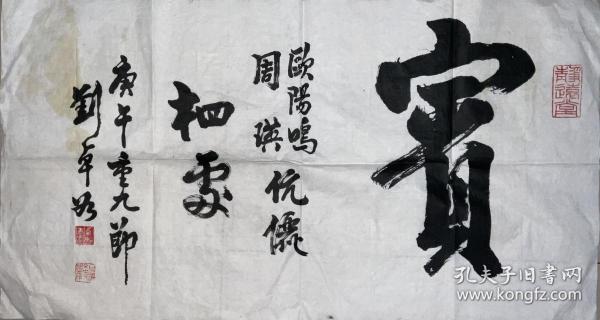 賓
歐陽鳴
周瑛
伉儷
庚午重九節
劉卓
孔夫子旧书网
www.kongfz.com